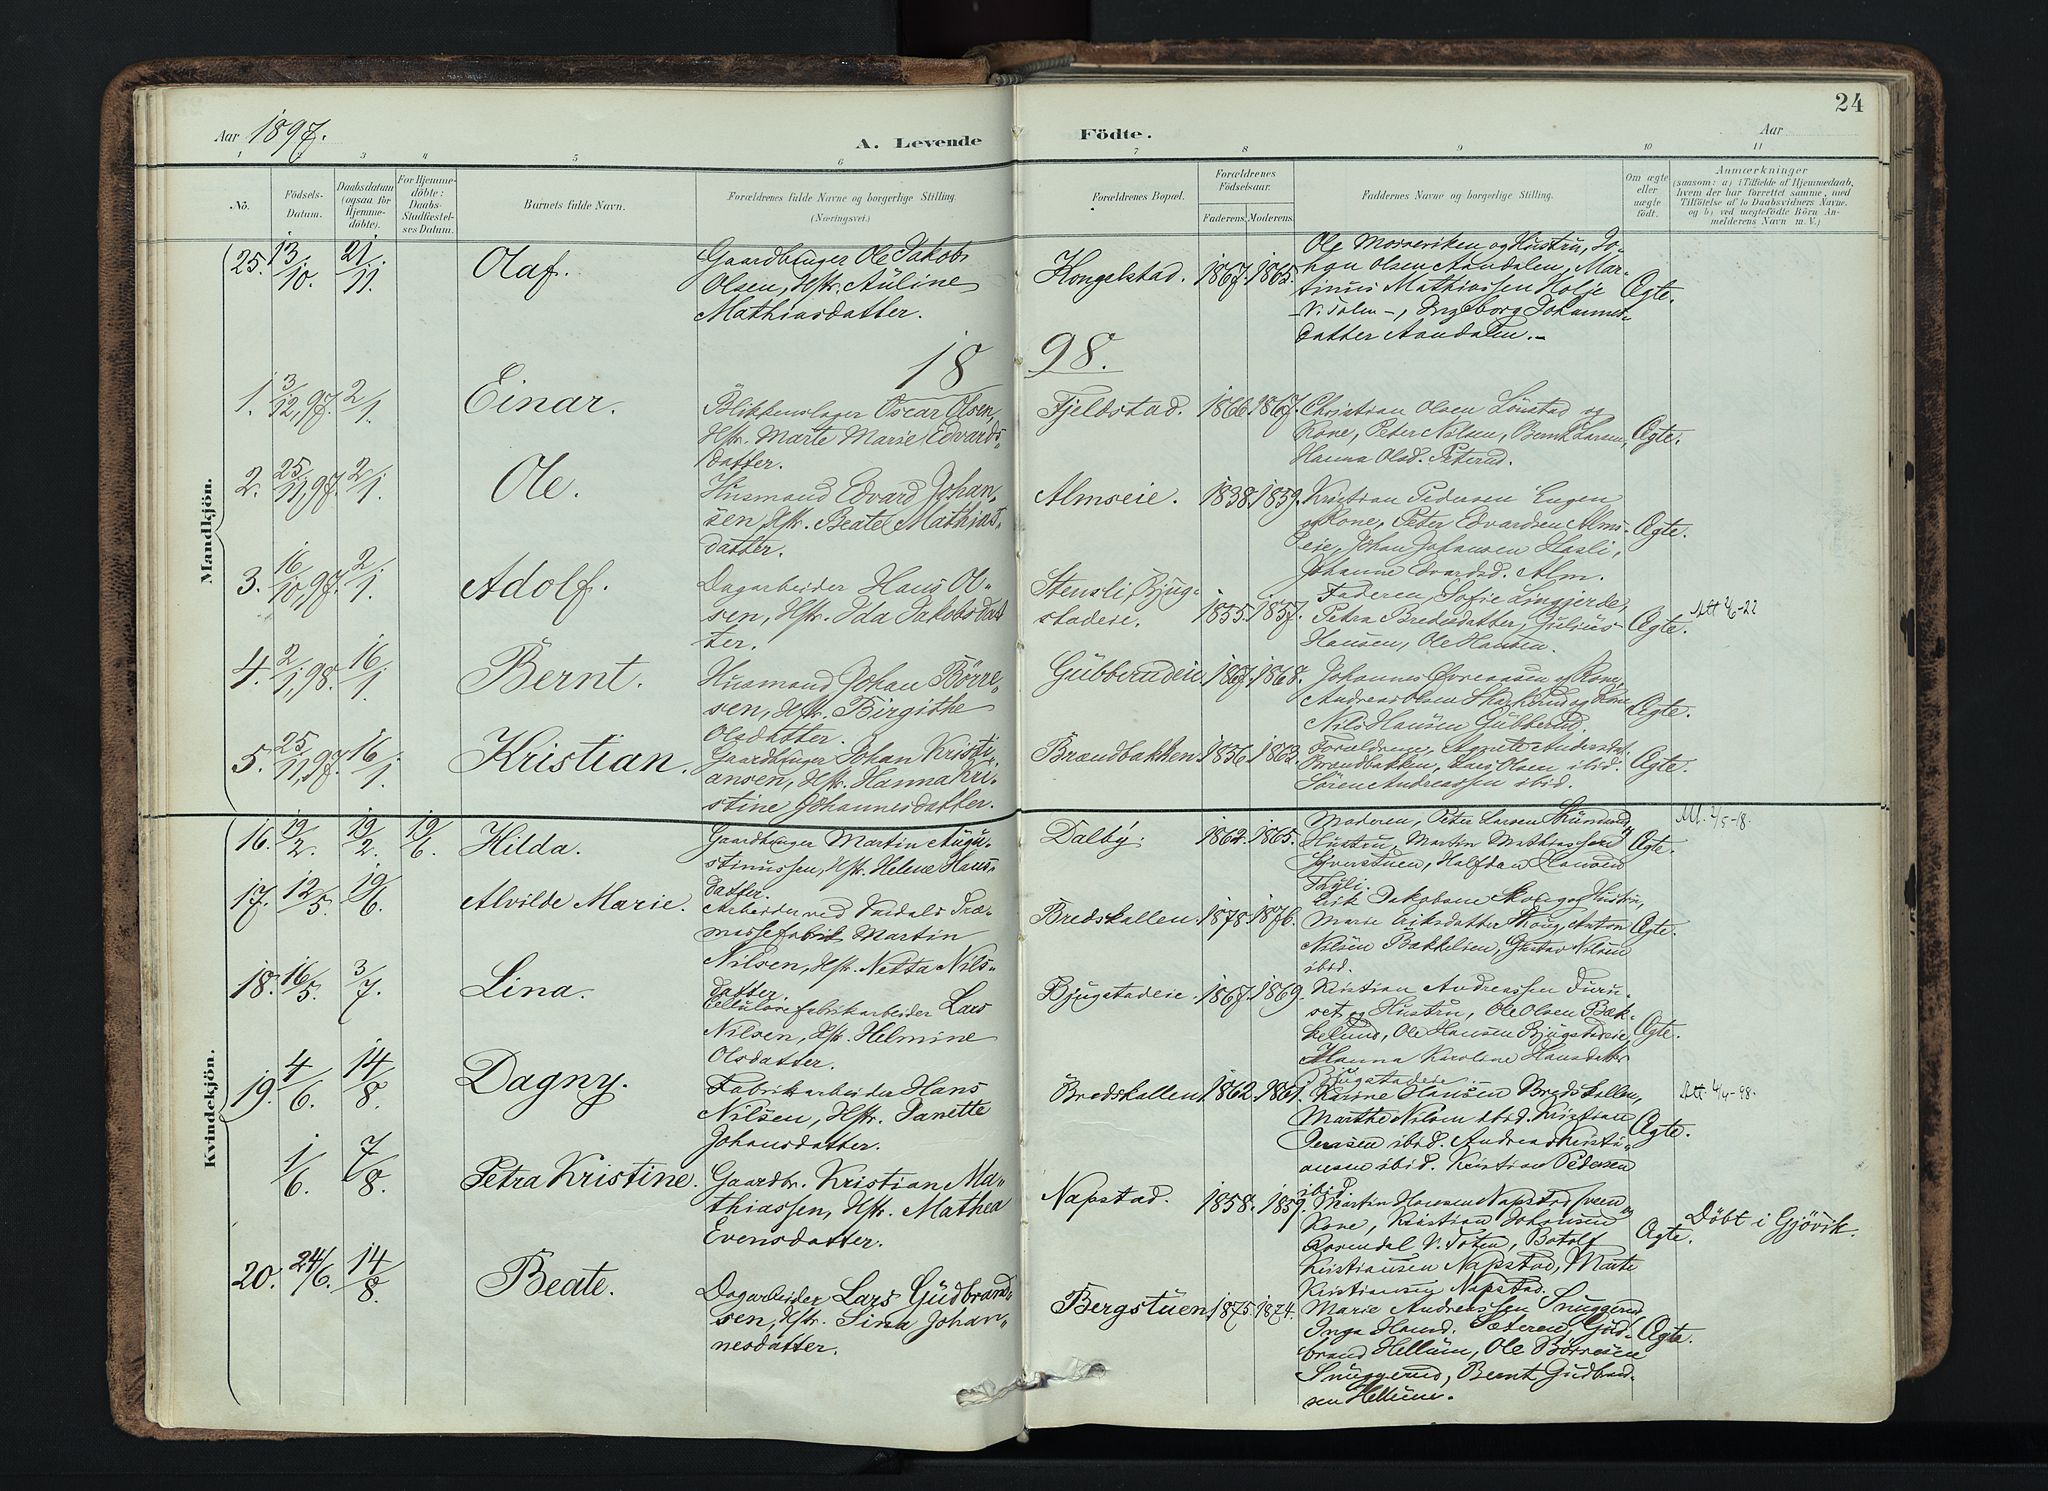 24
Aar 1897.
A. Levende Födte.
Aar
1 2 3 4 5 6 7 8 9 10 11
No.
Födsels-Datum.
Daabsdatum (ogsaa for Hjemmedöbte).
For Hjemmedöbte: Daabs-Stadfæstelses Datum.
Barnets fulde Navn.
Forældrenes fulde Navne og borgerlige Stilling.
(Næringsvei.)
Forældrenes Bopæl.
Forældrenes Födselsaar.
Faderens. Moderens.
Faddernes Navne og borgerlige Stilling.
Om ægte eller uægte født.
Anmærkninger
(saasom: a) i Tilfælde af Hjemmedaab,
hvem der har forrettet samme, med
Tilföielse af to Daabsvidners Navne.
og b) ved uægtefödte Börn Anmelderens Navn m. V.)
Mandkjön.
25. 13/10. 21/11. Olaf. Gaardbruger Ole Jakob
Olsen, Hstr. Auline
Mathiasdatter.
Kongelstad. 1867. 1865.
Ole Morveviken og Hustru, Jo-
han Olsen Aandalen, Mar-
tinus Mathiassen Holje
V. Toten, Ingeborg Johannes-
datter Aandalen.
Ægte.
18 98.
1. 3/12, 97. 2/1. Einar. Blikkenslager Oscar Olsen,
Hstr. Marte Marie Edvards-
datter.
Fjeldstad. 1866 1867.
Christian Olsen Lönstad og
Kone, Peter Nilsen, Bernt Larsen,
Hanna Olsd. Peterud.
Ægte.
2. 25/11, 97. 2/1. Ole. Husmand Edvard Johan-
sen, Hstr. Beate Mathias-
datter.
Almseie. 1838. 1859.
Kristian Pedersen Engen
og Kone, Peter Edvardsen Alms-
eie, Johan Johansen Hasli,
Johanne Edvardsd. Alm.
Ægte.
3. 16/10, 97. 2/1. Adolf. Dagarbeider Hans Ol-
sen, Hstr. Ida Jakobsdat-
ter.
Stensli, Bjug-
stadeie. 1855. 1857.
Faderen, Sofie
Petra Bredesdatter, Julius
Hansen, Ole Hansen.
Ægte.
4. 2/1, 98. 16/1. Bernt. Husmand Johan Börre-
sen, Hstr. Birgithe
Olsdatter.
Gubberudeie. 1867. 1868.
Johannes Evensen og Kone,
Andreas Olsen og Kone
Nils Hansen Gubberud.
Ægte.
5. 25/11, 97. 16/1. Kristian. Gaardbruger Johan Kristi-
ansen, Hstr. Hanna Kri-
stine Johannesdatter.
Brændbakken. 1856. 1863.
Forældrene, Agnete Andersd.
Brændbakken, Lars Olsen ibid.
Sören Andreassen ibid.
Ægte.
Kvindekjön.
16. 19/2. 19/2. 19/6. Hilda. Gaardbruger Martin Augu-
stinussen, Hstr. Helene Hans-
datter.
Dalby. 1862. 1865.
Moderen, Peter Larsen
Hustru, Martin Mathiassen
Syverstuen, Halfdan Hansen
Ægte
17. 12/5. 19/6. Alvilde Marie. Arbeider ved Vardals Træ-
massefabrik Martin
Nilsen, Hstr. Netta Nils-
datter.
Bredskallen. 1878. 1876.
Erik Jakobsen Skoug og Hustru,
Marie Eriksdatter Skoug, Anton
Nilsen Bakkelien, Gustav Nilsen
ibid.
Ægte.
18. 16/5. 3/7. Lina. Cellulosefabrikarbeider Lars
Nilsen, Hstr. Helmine
Olsdatter.
Bjugstadeie. 1867. 1869.
Kristian Andreassen Furu-
set og Hustru, Ole Olsen Bæk-
kelund, Ole Hansen Bjugstadeie,
Hanna Karoline Hansdatter
Bjugstadeie.
Ægte.
19. 4/6. 14/8. Dagny. Fabrikarbeider Hans
Nilsen, Hstr. Janette
Johansdatter.
Bredskallen. 1862. 1861.
Karine Hansen Bredskallen,
Marthe Nilsen ibid. Kristian
Jensen ibid. Andreas Kristi-
ansen ibid. Kristian Pedersen
ibid.
Ægte.
1/6. 7/8. Petra Kristine. Gaardbr. Kristian Ma-
thiassen, Hstr. Mathea
Evensdatter.
Napstad. 1858. 1859.
Martin Hansen Napstad sveen og
Kone, Kristian Johansen
Rosendal V. Toten, Botolf
Kristiansen Napstad, Marte
Kristiansen Napstad.
Ægte.
Döbt i Gjövik.
20. 24/6. 14/8. Beate. Dagarbeider Lars Gudbrand-
sen, Hstr. Lina Johan-
nesdatter.
Bergstuen. 1875. 1874.
Marie Andreassen Snuggerud
Inga Hansd. Sæteren, Gud-
brand Hellum, Ole Börresen
Snuggerud, Bernt Gudbrand-
sen Hellum.
Ægte.